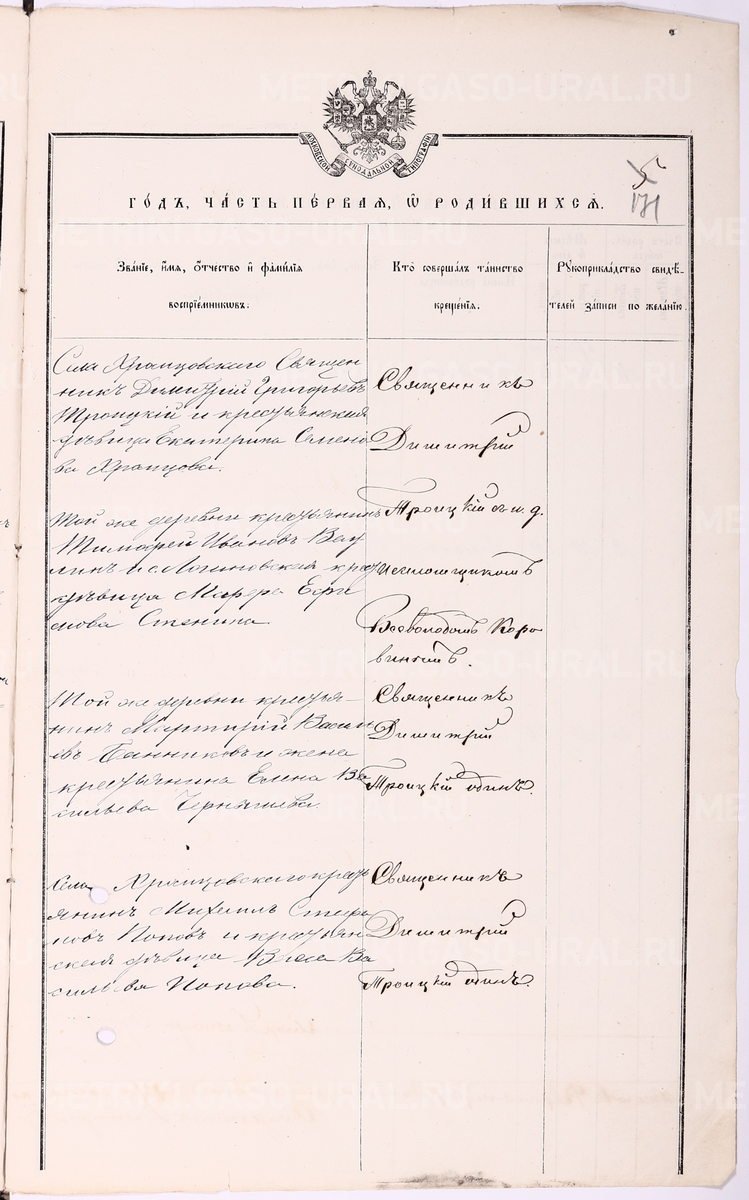 METRIKI.GASO-URAL.RU
МОСКОВСКОЙ СѴНОДАЛЬНОЙ ТИПОГРАФІИ
5
171
ГОДЪ, ЧАСТЬ ПЕРВАЯ, Ѡ РОДИВШИХСЯ.
Званіе, имя, отчество и фамилія
воспріемниковъ.
Кто совершалъ таинство
крещенія.
Рукоприкладство свидѣ-
телей записи по желанію.
Села Храпцовскаго Священ
никъ Димитрій Григорьевъ
Троицкій и крестьянская
дѣвица Екатерина Семено
ва Храпцова.
Священникъ
Димитрій
Троицкій съ и. д.
псаломщикомъ
Всеволодомъ Коро
винымъ.
Той же деревни крестьянинъ
Тимофей Ивановъ Вау
линъ и с. Логиновская крест
дѣвица Марфа Ефи
мова Стенина.
Той же деревни крестья-
нинъ Мартирій Василь
евъ Банниковъ и жена
крестьянина Елена Ва
сильева Чернышева.
Священникъ
Димитрій
Троицкій одинъ.
Села Храпцовскаго крест
янинъ Михаилъ Стефа
новъ Поповъ и крестьян
ская дѣвица Васса Ва
сильева Попова.
Священникъ
Димитрій
Троицкій одинъ.